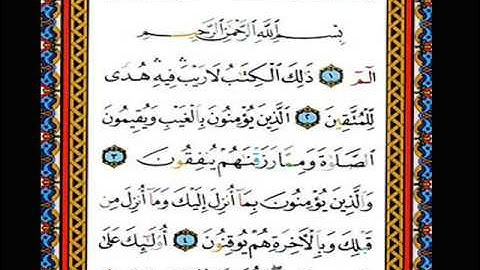 بِسْمِ ٱللَّهِ ٱلرَّحْمَٰنِ ٱلرَّحِيمِ
الٓمٓ ١ ذَٰلِكَ ٱلْكِتَٰبُ لَا رَيْبَ ۛ فِيهِ ۛ هُدًى
لِّلْمُتَّقِينَ ٢ ٱلَّذِينَ يُؤْمِنُونَ بِٱلْغَيْبِ وَيُقِيمُونَ
ٱلصَّلَوٰةَ وَمِمَّا رَزَقْنَٰهُمْ يُنفِقُونَ ٣
وَٱلَّذِينَ يُؤْمِنُونَ بِمَآ أُنزِلَ إِلَيْكَ وَمَآ أُنزِلَ مِن
قَبْلِكَ وَبِٱلْءَاخِرَةِ هُمْ يُوقِنُونَ ٤ أُو۟لَٰٓئِكَ عَلَىٰ